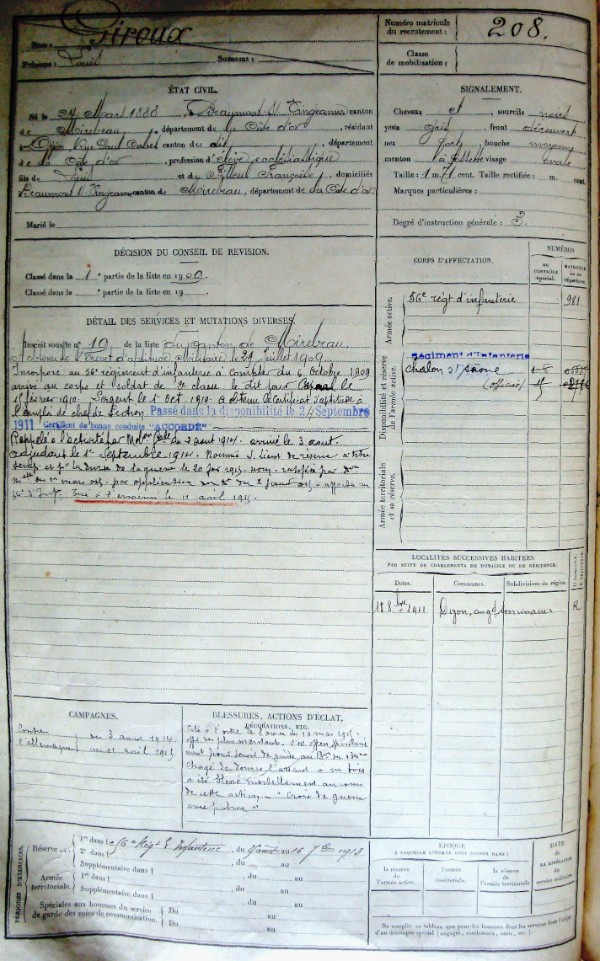 Nom : Giroux
Prénoms : Louis Surnoms :
Numéro matricule du recrutement : 208.
Classe de mobilisation :
ÉTAT CIVIL.
Né le 27 Mars 1888, à Beaumont s/ Vingeanne canton
de Mirebeau, département de la Côte d'or, résidant
à Dijon, rue Paul Cabet canton du dit, département
de la Côte d'or, profession d'élève ecclésiastique
fils de Louis et de Françoise, domiciliés
à Beaumont s/ Vingeanne canton de Mirebeau, département de la Côte d'or
Marié le
SIGNALEMENT.
Cheveux et sourcils noirs
yeux gris, front découvert
nez fort, bouche moyenne
menton à fossette visage ovale
Taille : 1 m. 71 cent. Taille rectifiée : m. cent.
Marques particulières :
Degré d'instruction générale : 3.
DÉCISION DU CONSEIL DE REVISION.
Classé dans la 1e partie de la liste en 1909.
Classé dans la e partie de la liste en 19
CORPS D'AFFECTATION.
NUMÉROS
AU CONTRÔLE spécial.
MATRICULE ou au répertoire.
Armée active.
56e régt d'infanterie 981
Disponibilité et réserve de l'armée active.
Régiment d'Infanterie
Chalon s/ Saône
(officier)
Armée territoriale et sa réserve.
DÉTAIL DES SERVICES ET MUTATIONS DIVERSES.
Inscrit sous le n° 19 de la liste du canton de Mirebeau.
Brevet d'aptitude Militaire le 21 Juillet 1909
Incorporé au 56e régiment d'infanterie à compter du 6 octobre 1909
arrivé au corps et soldat de 2e classe le dit jour Caporal le
1er février 1910. Sergent le 1er Oct. 1910. A obtenu le Certificat d'aptitude à
l'emploi de chef de section Passé dans la disponibilité le 24 Septembre
1911 Certificat de bonne conduite "ACCORDÉ"
Rappelé à l'activité par Mobon Gale du 2 août 1914. arrivé le 3 août.
adjudant le 1er Septembre 1914. Nommé S. Lieut. de réserve à titre
temp. et pr la durée de la guerre le 20 1915.
56e d'Inf. Tué à l'ennemi le 11 avril 1915.
LOCALITÉS SUCCESSIVES HABITÉES
PAR SUITE DE CHANGEMENTS DE DOMICILE OU DE RÉSIDENCE.
Dates. Communes. Subdivisions de région.
18 8bre 1911 Dijon, au gd séminaire R
CAMPAGNES.
Contre l'allemagne du 3 août 1914
au 11 avril 1915.
BLESSURES, ACTIONS D'ÉCLAT,
DÉCORATIONS, ETC.
Cité à l'ordre de l'armée du 13 mai 1915.
offr des plus méritants. S'est offert
pour servir de guide au Bon du 134e
chargé de donner l'assaut à un bois
a été blessé mortellement au cours
de cette action – "Croix de guerre
avec palme"
PÉRIODES D'EXERCICES.
Réserve
1re dans l 56e Régt d'Infanterie du au 16 7bre 1913
2e dans l , du au
Supplémentaire dans l , du au
Armée territoriale.
1re dans l , du au
Supplémentaire dans l , du au
Spéciales aux hommes du service de garde des voies de communication.
Du au
Du au
ÉPOQUE
À LAQUELLE L'HOMME DOIT PASSER DANS :
la réserve de l'armée active.
l'armée territoriale.
la réserve de l'armée territoriale.
DATE de LA LIBÉRATION du service militaire.